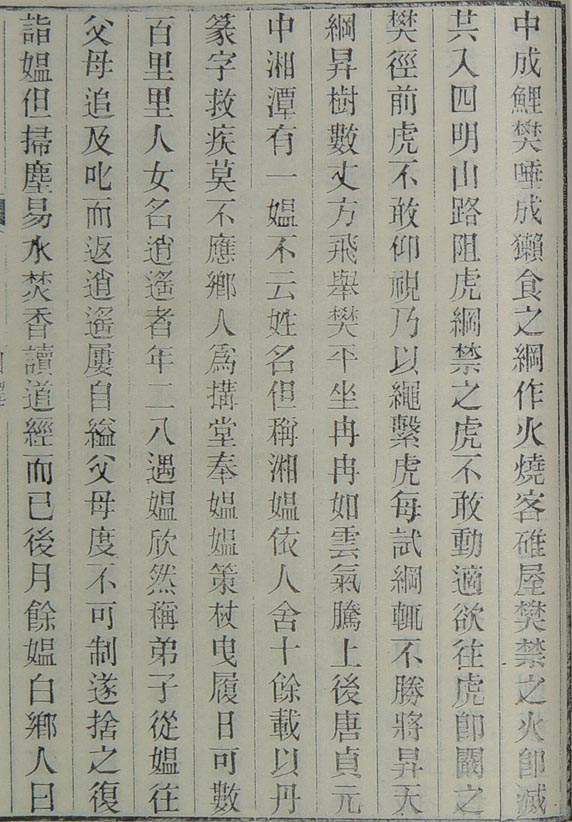 中成鯉樊唾成獺食之綱作火燒客碓屋樊禁之火卽滅
共入四明山路阻虎綱禁之虎不敢動適欲往虎卽闞之
樊徑前虎不敢仰視乃以繩繫虎每試綱輒不勝將昇天
綱昇樹數丈方飛舉樊平坐冉冉如雲氣騰上後唐貞元
中湘潭有一媼不云姓名但稱湘媼依人舍十餘載以丹
篆字救疾莫不應鄉人爲搆堂奉媼媼策杖曳履日可數
百里里人女名逍遙者年二八遇媼欣然稱弟子從媼往
父母追及叱而返逍遙屢自縊父母度不可制遂捨之復
詣媼但掃塵易水焚香讀道經而已後月餘媼白鄉人曰